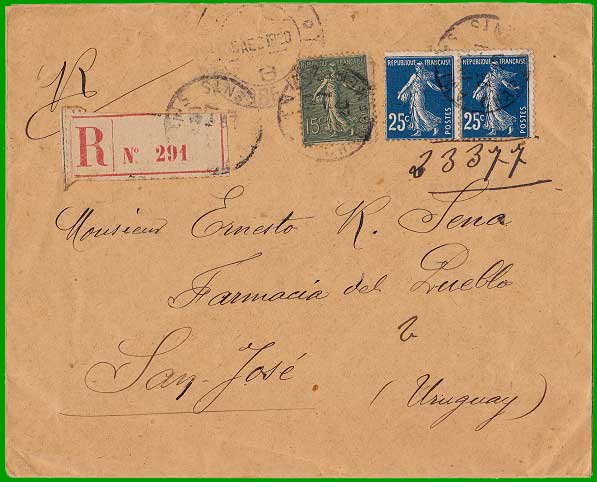 R
R No 291
15c
RÉPUBLIQUE FRANÇAISE
25c
POSTES
RÉPUBLIQUE FRANÇAISE
25c
POSTES
23377
Monsieur Ernesto R. Sena
Farmacia del Pueblo
San José
(Uruguay)